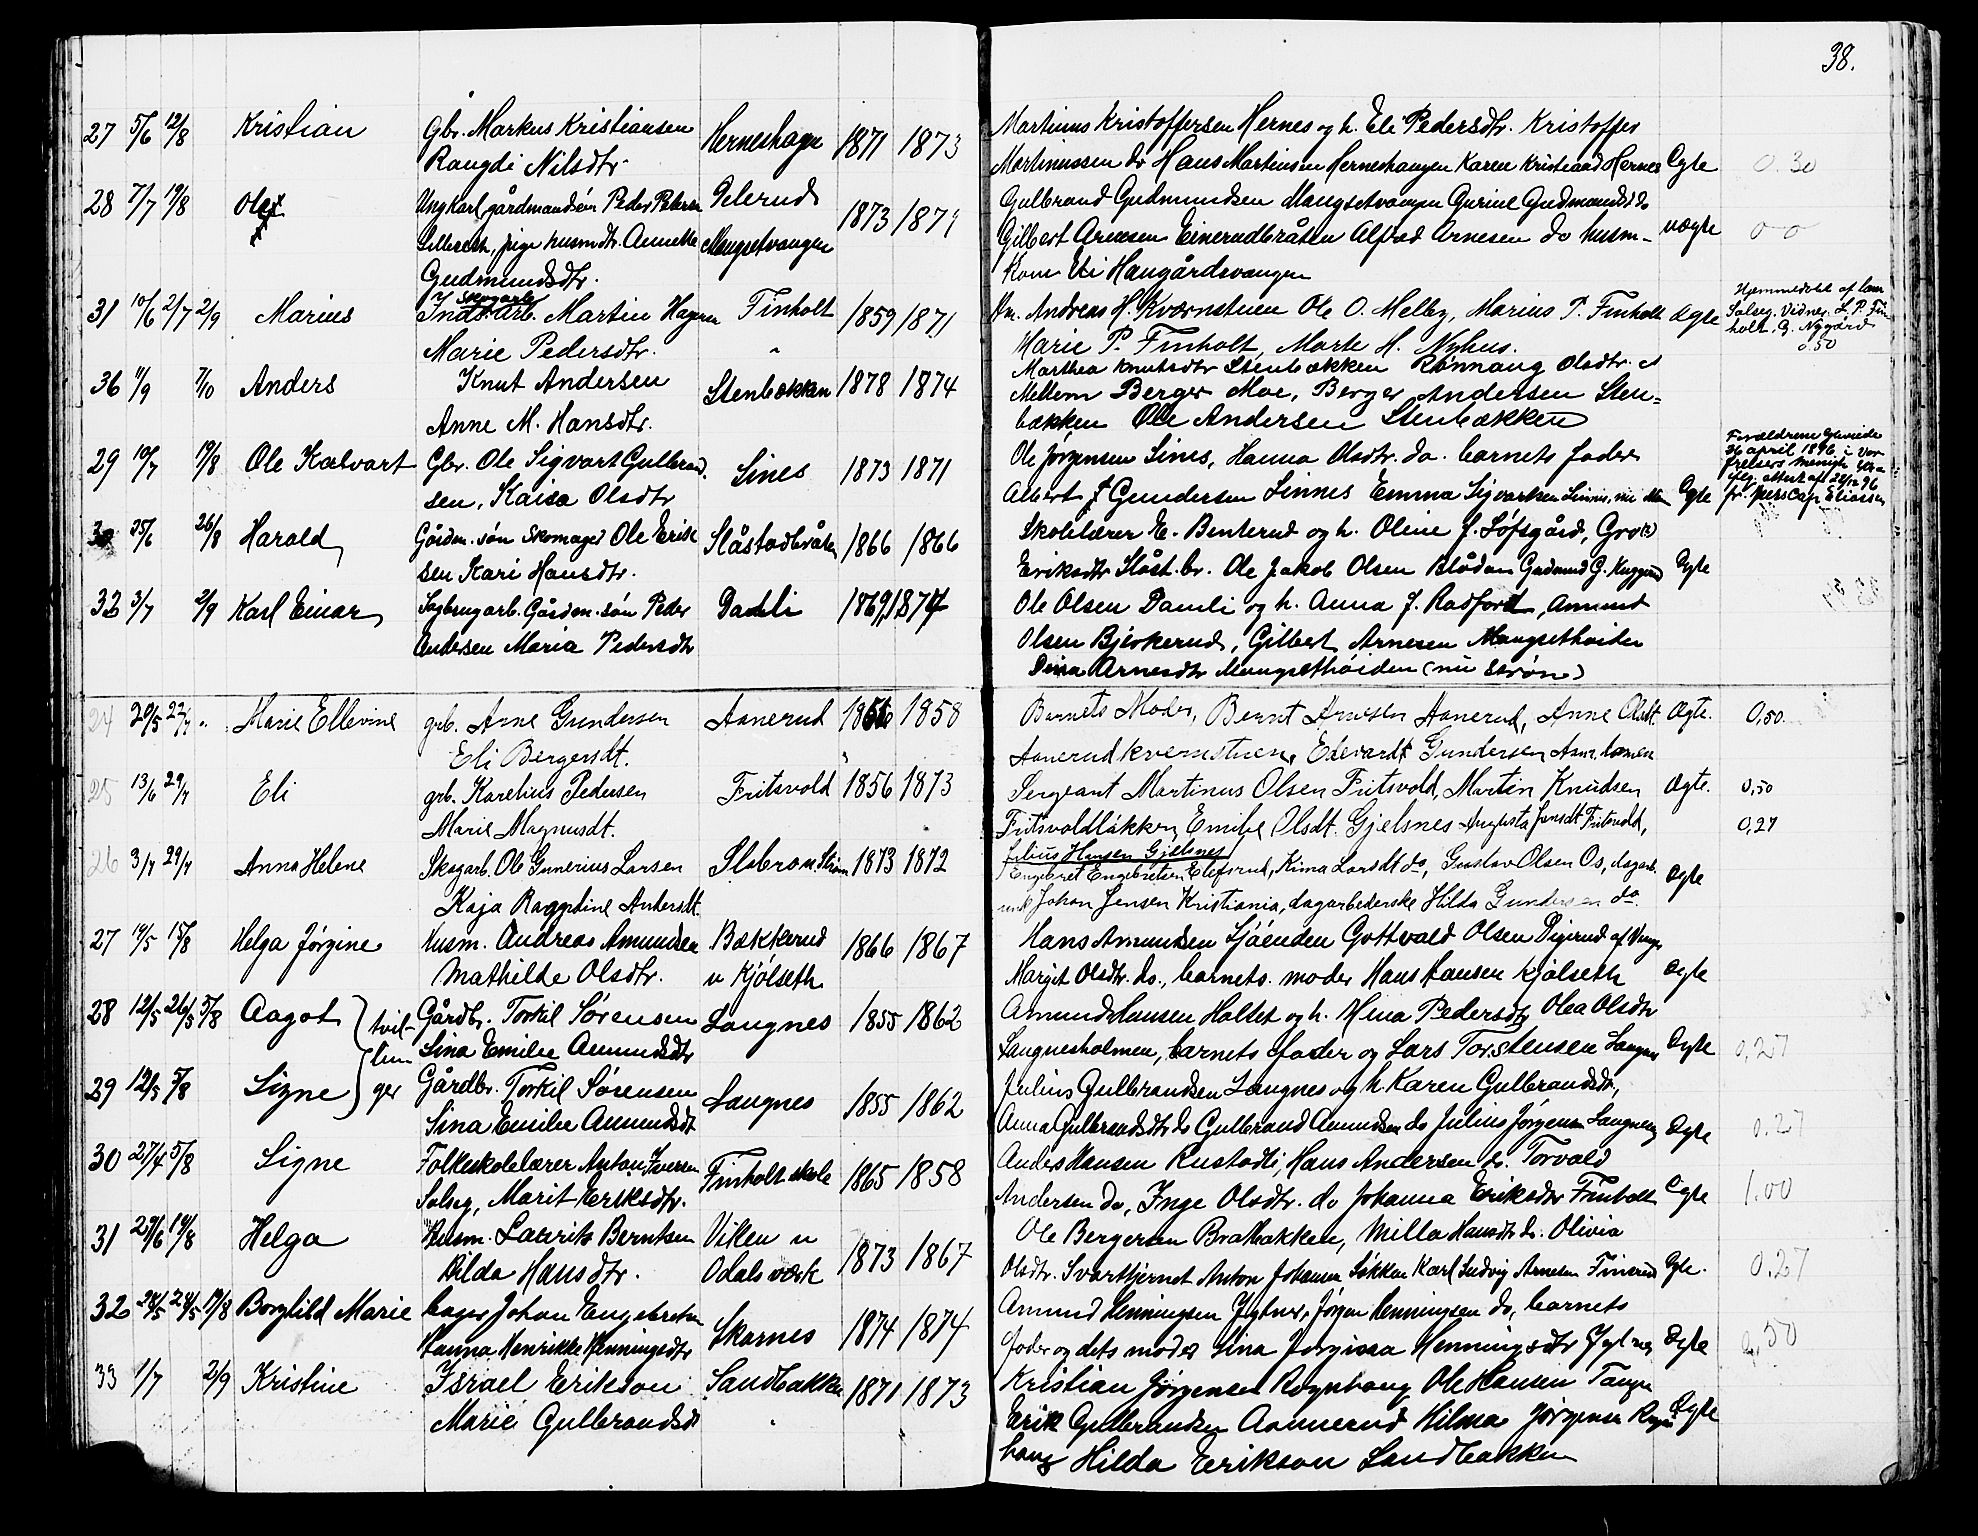 38.
27 5/6 12/8 Kristian Gbr. Markus Kristiansen Herneshagen 1871 1873 Martinus Kristoffersen Hernes og h. Eli Pedersdtr. Kristoffer
Rangdi Nilsdtr. Martinussen do Hans Martinsen Herneshaugen Karen Hernes Ægte 0.30
28 7/7 19/8 Ole Ungkarl gårdmandsøn Peder Petersen Gelerud 1873 1879 Gulbrand Gudmundsen Mangsetvangen Gurine Gudmundsd do
pige husmdtr. Annette Mangsetvangen Gilbert Arnesen Einerudbråten Alfred Arnesen do husm- uægte 0 0
Gudmundsdtr. kone Eli Haugårdsvangen
31 10/6 2/7 2/9 Marius Skogarb. Martin Hagen Finholt 1859 1871 Andreas H. Kværnstuen Ole O. Melby, Marius P. Finholt Ægte Hjemmedøbt af
Marie Pedersdtr. " Marie P. Finholt, Marte H. Nyhus. Solseg. Vidner L. P. Finholt, G. Nygård 0.50
36 11/9 7/10 Anders Knut Andersen Stenbækken 1878 1874 Marthea Knutsdtr Stenbækken Rønnaug Olsdtr.
Anne M. Hansdtr. Mellem Berger Moe, Berger Andersen Sten=
bækken Ole Andersen Stenbækken
29 10/7 19/8 Ole Kalvart Gbr. Ole Sigvart Gulbrand- Sines 1873 1871 Ole Jørgensen Sines, Hanna Olsdtr. do. barnets fader Forældrene
sen, Kaisa Olsdtr Albert J Gundersen Sinnes Emma Sigvartsen Ægte 26 april 1896 i Vor frelsers menigh.
30 25/6 26/8 Harald Gårdm. søn Skomager Ole Erik Slåstadbråten 1866 1866 Skolelærer E. Benterud og h. Oline J. Løfsgård, Gro(?)
sen Kari Hansdtr. Eriksdtr Slåst. br. Ole Jakob Olsen Gudmund G. Ægte
32 3/7 2/9 Karl Einar Sagbrugarb. Gårdm. søn Peder Damli 1869 1874 Ole Olsen Damli og h. Anna J. Radford, Amund
Andersen Maria Pedersdtr Olsen Bjerkerud, Gilbert Arnesen Mangsethøiden
Dina Arnesdtr Mangsethøiden (nu Strøm)
24 20/5 22/7 " Marie Ellevine grb. Arne Gundersen Aanerud 1858 Barnets Moder, Bernt Arnesen Aanerud, Anne Olsdt. Ægte. 0,50
Eli Bergersdt. " Aanerudkvernstuen, Edevardt Gundersen
25 13/6 29/7 Eli grb. Karelius Pedersen Fritsvold 1856 1873 Sergeant Martinus Olsen Fritsvold, Martin Knudsen Ægte. 0,50
Marie Magnusdt. Fritsvoldløkken, Emilie Olsdt. Gjelsnes Augusta Jensdt Fritsvold, 0,27
Julius Hansen Gjelsnes
26 3/7 29/7 Anna Helene Skogarb. Ole Gunerius Larsen Slobraa. Strøm 1873 1872 Engebret Engebretsen Elefsrud, Kima Larsdt do, Gustav Olsen Os, dagarb.
Kaja Ragndine Andersdt. Johan Jensen Kristiania, dagarbederske Hilda Gundersen do Ægte
27 19/5 15/8 Helga Jørgine Husm. Andreas Amundsen Bækkerud 1866 1867 Hans Amundsen Sjøenden Gottvald Olsen Digerud af
Mathilde Olsdtr. u Kjølseth Margit Olsdtr. do., barnets moder Hans Hansen Kjølseth Ægte
28 12/5 26/5 5/8 Aagot tvil- Gårdbr. Torkil Sørensen Langnes 1855 1862 Amund Hansen Holtet og h. Mina Pedersdtr Olea Olsdtr
lin- Sina Emilie Amundsdtr Langnesholmen, barnets fader og Lars Torstensen Langnes Ægte 0,27
29 12/5 5/8 Signe ger Gårdbr. Torkil Sørensen Langnes 1855 1862 Julius Gulbrandsen Langnes og h. Karen Gulbrandsdtr,
Sina Emilie Amundsdt Anna Gulbrandsdtr do Gulbrand Amundsen do Julius Jørgensen Langnes Ægte 0.27
30 27/4 5/8 Signe Folkeskolelærer Anton Iversen Finholt skole 1865 1858 Anders Hansen Rustadli, Hans Andersen do. Torvald
Solseg, Marit Eriksdtr. Andersen do, Inge Olsdtr. do Johanna Eriksdtr Finholt Ægte 1.00
31 27/6 19/8 Helga Husm. Laurits Berntsen Viken u 1873 1867 Ole Bergersen Brattbakken, Milla Hansdtr do. Olivia
Hilda Hansdtr. Odals værk Olsdtr. Svarttjernet Anton Johansen Løkken Karl Ludvig Arnesen Finerud Ægte. 0.27
32 24/5 24/5 19/8 Borghild Marie bager Johan Engebretsen Skarnes 1874 1874 Amund Henningsen Jyltnes, Jørgen Henningsen do, barnets
Hanna Henrikke Henningsdtr fader og dets moder Lina Jørgine Henningsdtr Jyltnes Ægte 0,50
33 1/7 2/9 Kristine Israel Erikson Sandbakken 1871 1873 Kristian Jørgensen Rognhaug Ole Hansen Tangen
Marie Gulbrandsdt " Erik Gulbrandsen Aannerud Hilma Jørgensen Rogn- Ægte
haug Hilda Erikson Sandbakken